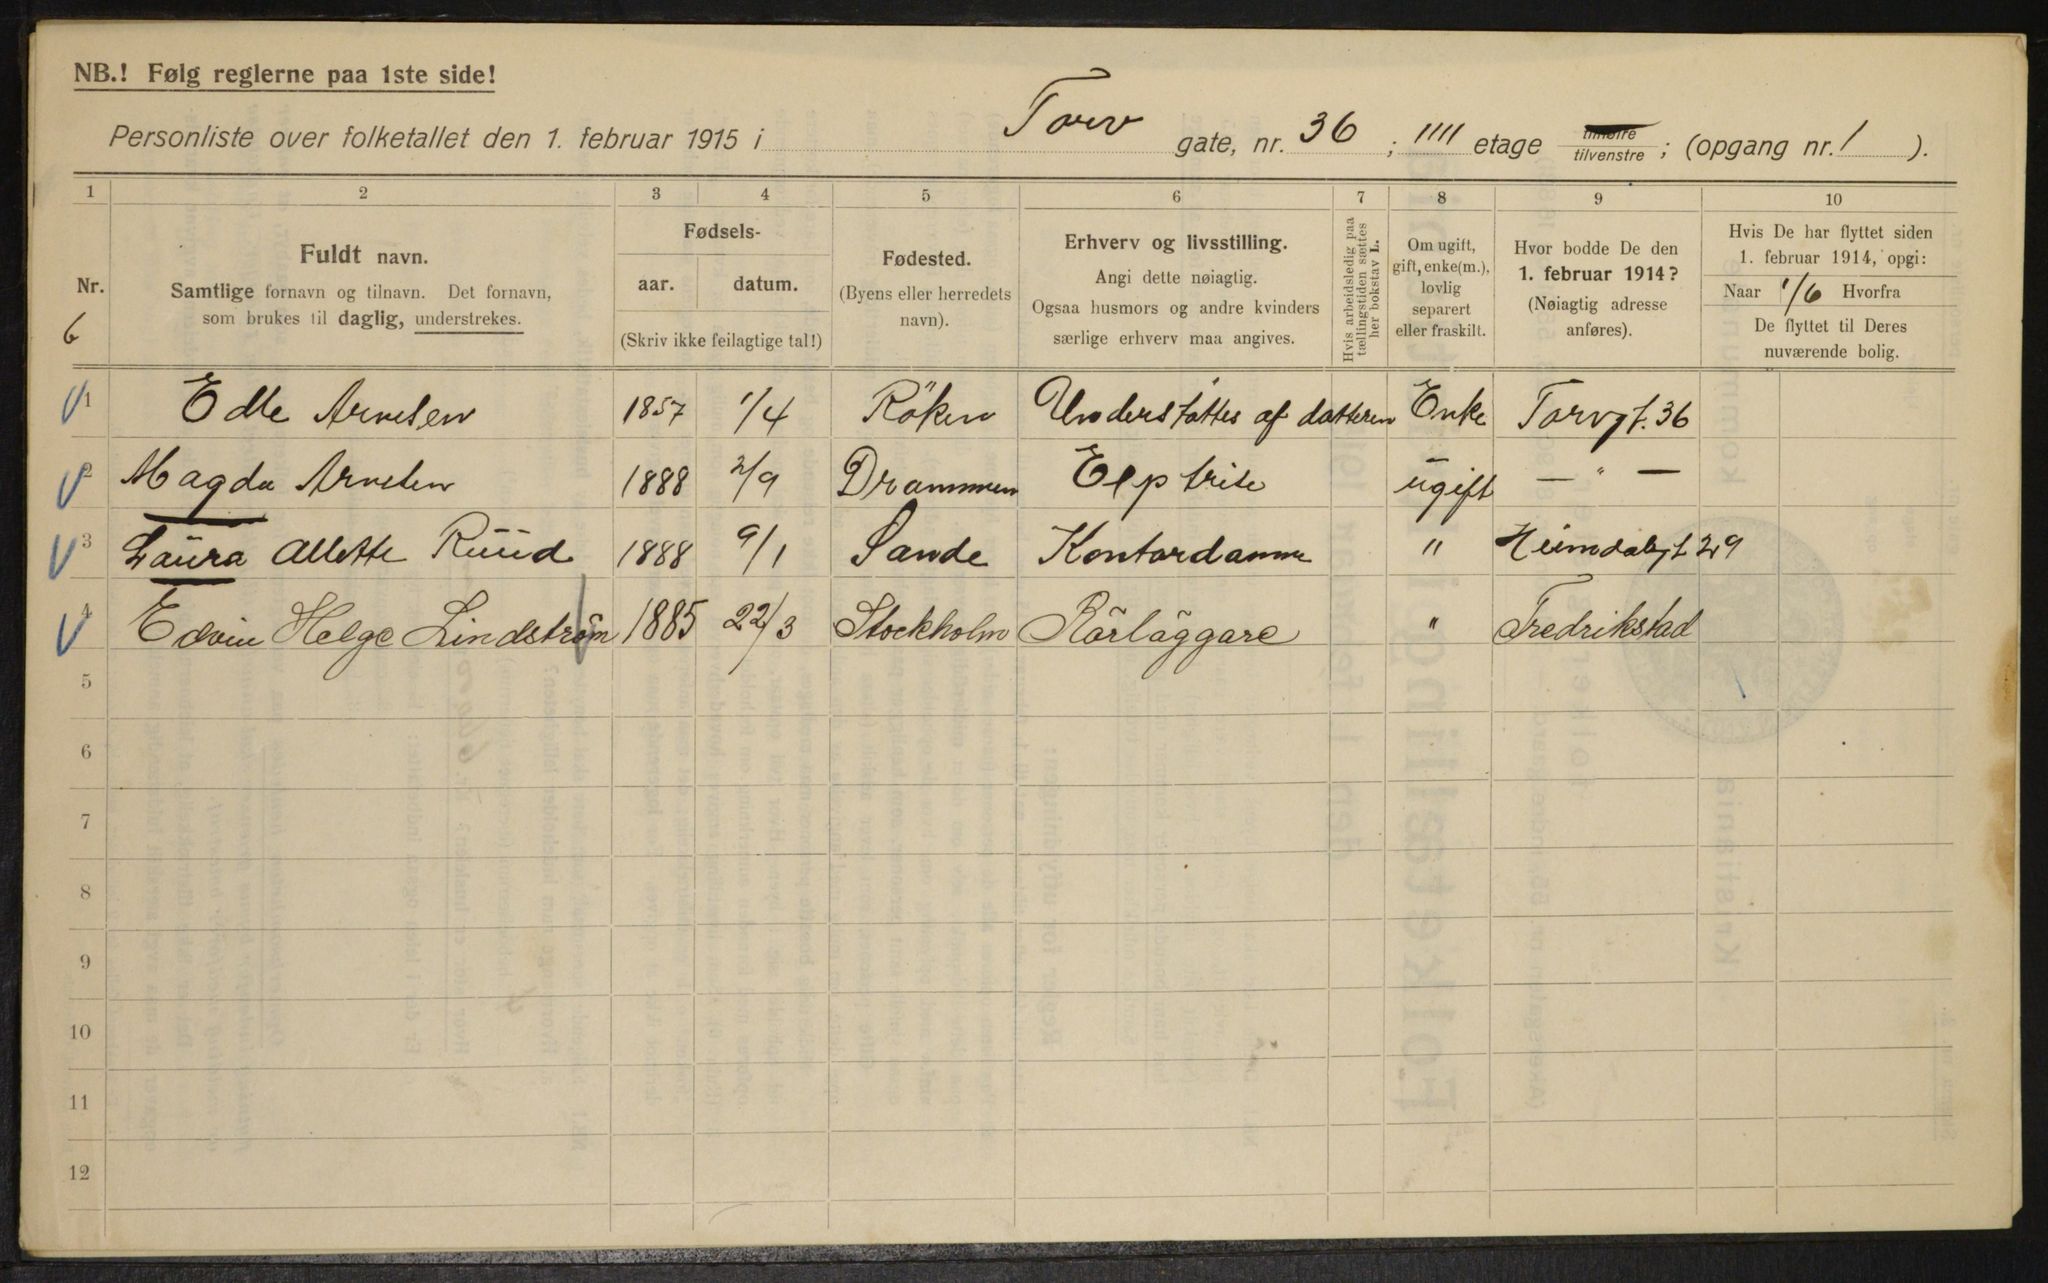 NB.! Følg reglerne paa 1ste side!
Personliste over folketallet den 1. februar 1915 i Torv gate, nr. 36 ; IIII etage tilhøire tilvenstre ; (opgang nr. 1 ).
1 2 3 4 5 6 7 8 9 10
Nr. 6
Fuldt navn.
Samtlige fornavn og tilnavn. Det fornavn,
som brukes til daglig, understrekes.
Fødsels-
aar. datum.
(Skriv ikke feilagtige tal!)
Fødested.
(Byens eller herredets
navn).
Erhverv og livsstilling.
Angi dette nøiagtig.
Ogsaa husmors og andre kvinders
særlige erhverv maa angives.
Hvis arbeidsledig paa
tællingstiden sættes
her bokstav L.
Om ugift,
gift, enke(m.),
lovlig
separert
eller fraskilt.
Hvor bodde De den
1. februar 1914?
(Nøiagtig adresse
anføres).
Hvis De har flyttet siden
1. februar 1914, opgi:
Naar 1/6 Hvorfra
De flyttet til Deres
nuværende bolig.
1 Edle Arnesen 1857 1/4 Röken Understøttes af datteren Enke Torvgt. 36
2 Magda Arnesen 1888 2/9 Drammen ugift — " —
3 Laura Allette Ruud 1888 9/1 Sande Kontordamme " Heimdalsgt 29
4 Edvin Helge Lindström 1885 22/3 Stockholm Rörläggare " Fredrikstad
5
6
7
8
9
10
11
12